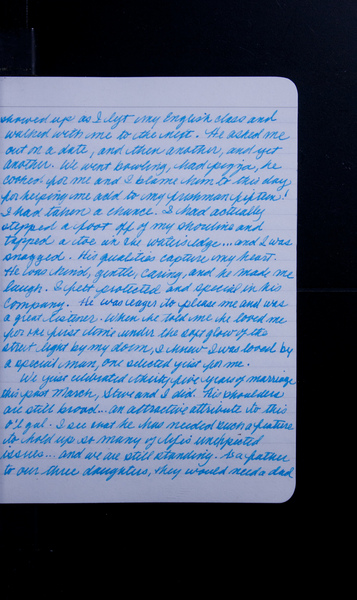 showed up as I left my English class and
walked with me to the next. He asked me
out on a date, and then another, and yet
another. We went bowling, had pizza, he
cooked for me and I blame him to this day
for helping me add to my freshman fifteen!
I had taken a chance. I had actually
stepped a foot off of my shoreline and
tapped a toe in the water's edge...and I was
snagged. His qualities capture my heart.
He was kind, gentle, caring, and he made me
laugh. I felt protected and special in his
company. He was eager to please me and was
a great listener. When he told me he loved me
for the first time under the soft glow of the
street light by my dorm, I knew I was loved by
a special man, one selected just for me.
We just celebrated thirty five years of marriage
this past March, Steve and I did. His shoulders
are still broad... an attractive attribute to this
o'l gal. I see that he has needed such a feature
to hold up so many of life's unexpected
issues... and we are still standing. As a father
to our three daughters, they would need a dad